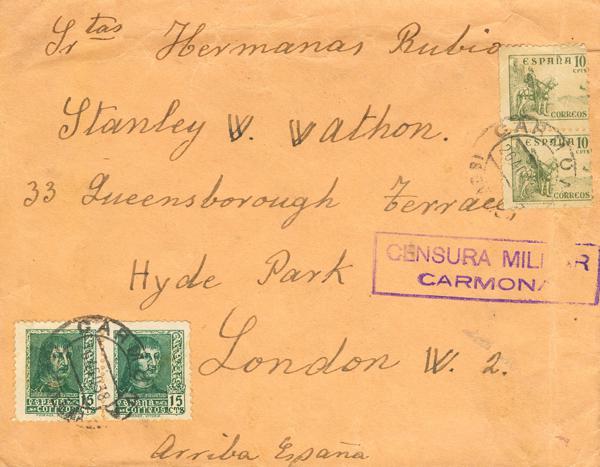 Srtas Hermanas Rubio
Stanley W. Wathon.
33 Queensborough Terrace
Hyde Park
London W. 2.
Arriba España
ESPAÑA 10
CTS
CORREOS
ESPAÑA 10
CTS
CORREOS
CARMONA
CENSURA MILITAR
CARMONA
CARMONA
15 15
ESPAÑA ESPAÑA
CORREOS CORREOS
CTS CTS